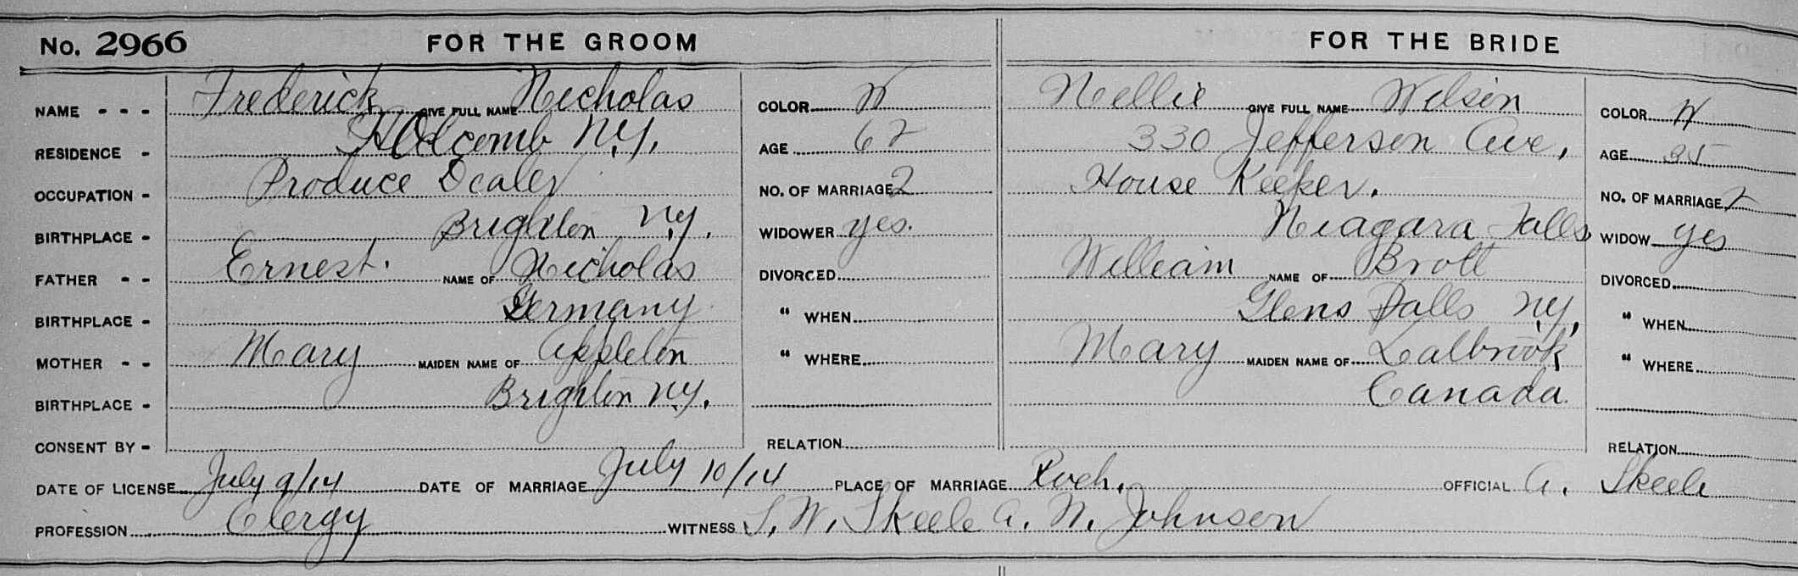 No. 2966 FOR THE GROOM FOR THE BRIDE
NAME - - - Frederick GIVE FULL NAME Nicholas COLOR W Nellie GIVE FULL NAME Wilson COLOR W
RESIDENCE - Holcomb N.Y. AGE 62 330 Jefferson Ave, AGE
OCCUPATION - Produce Dealer NO. OF MARRIAGE 2 House Keeper. NO. OF MARRIAGE 2
BIRTHPLACE - Brighton N.Y. WIDOWER yes. Niagara Falls WIDOW yes
FATHER - - Ernest. NAME OF Nicholas DIVORCED William NAME OF Brott DIVORCED
BIRTHPLACE - Germany " WHEN Glens Falls N.Y, " WHEN
MOTHER - - Mary MAIDEN NAME OF Appleton " WHERE Mary MAIDEN NAME OF " WHERE
BIRTHPLACE - Brighton N.Y. Canada
CONSENT BY - RELATION RELATION
DATE OF LICENSE July 9/14 DATE OF MARRIAGE July 10/14 PLACE OF MARRIAGE Roch. OFFICIAL A. Skeele
PROFESSION Clergy WITNESS S. W. Skeele A. N. Johnson